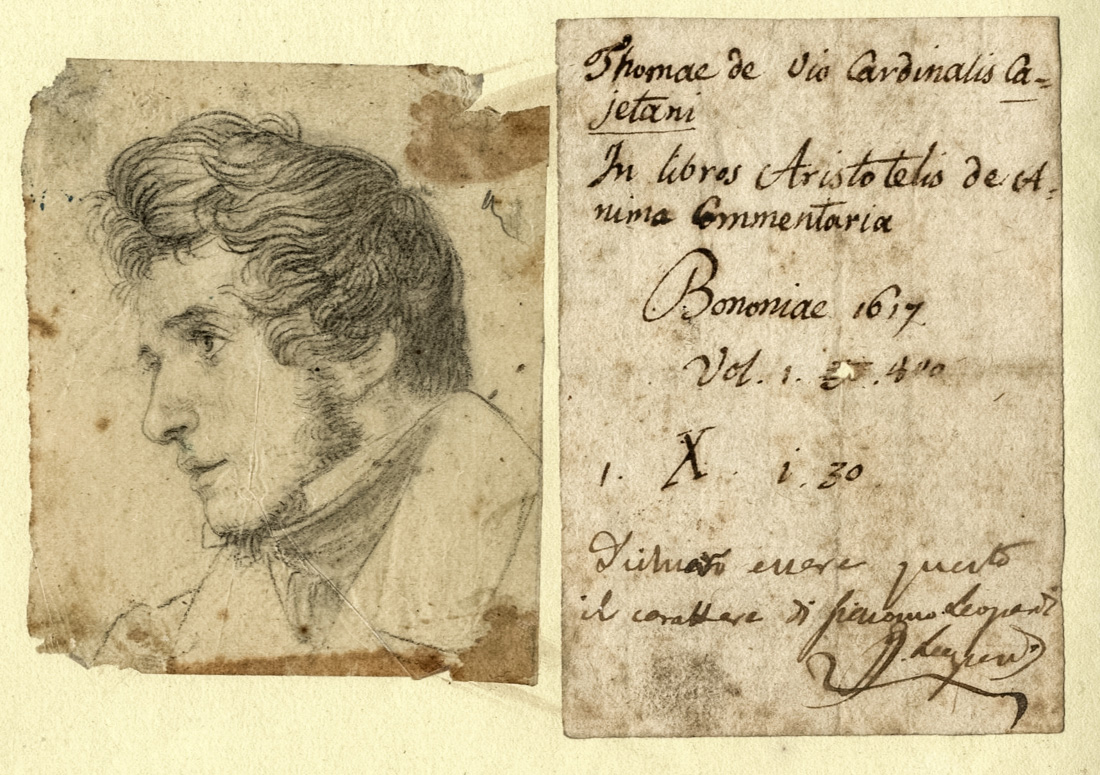 Thomae de Vio Cardinalis Ca-
jetani
In libros Aristotelis de A-
nima Commentaria
Bononiae 1617
Vol. 1.
1. X. i. 30
Dichiaro essere questo
il carattere di Giacomo Leopardi
Leopardi